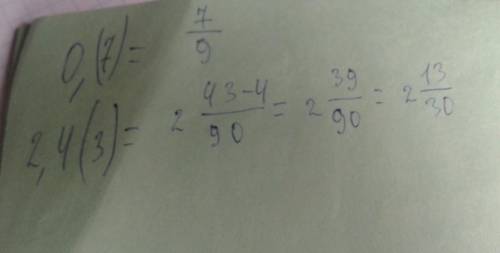 0,(7) = 7/9
2,4(3) = 2 43-4/90 = 2 39/90 = 2 13/30